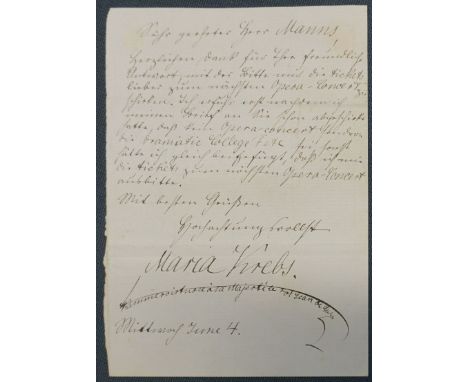 Sehr geehrter Herr Manns,
Herzlichen Dank für Ihre freundliche
Antwort, mit der Bitte mir die tickets
lieber zum nächsten Opera-Concert zu
schicken. Ich erfuhr erst nachdem ich
meinen Brief an Sie schon abgeschickt
hatte, daß kein Opera-concert sondern
die Dramatic College Fete sei sonst
hätte ich gleich beigefügt, daß ich mir
die tickets zum nächsten Opera-Concert
ausbitte.
Mit besten Grüßen
Hochachtungsvollst
Maria Krebs.
Mittwoch June 4.